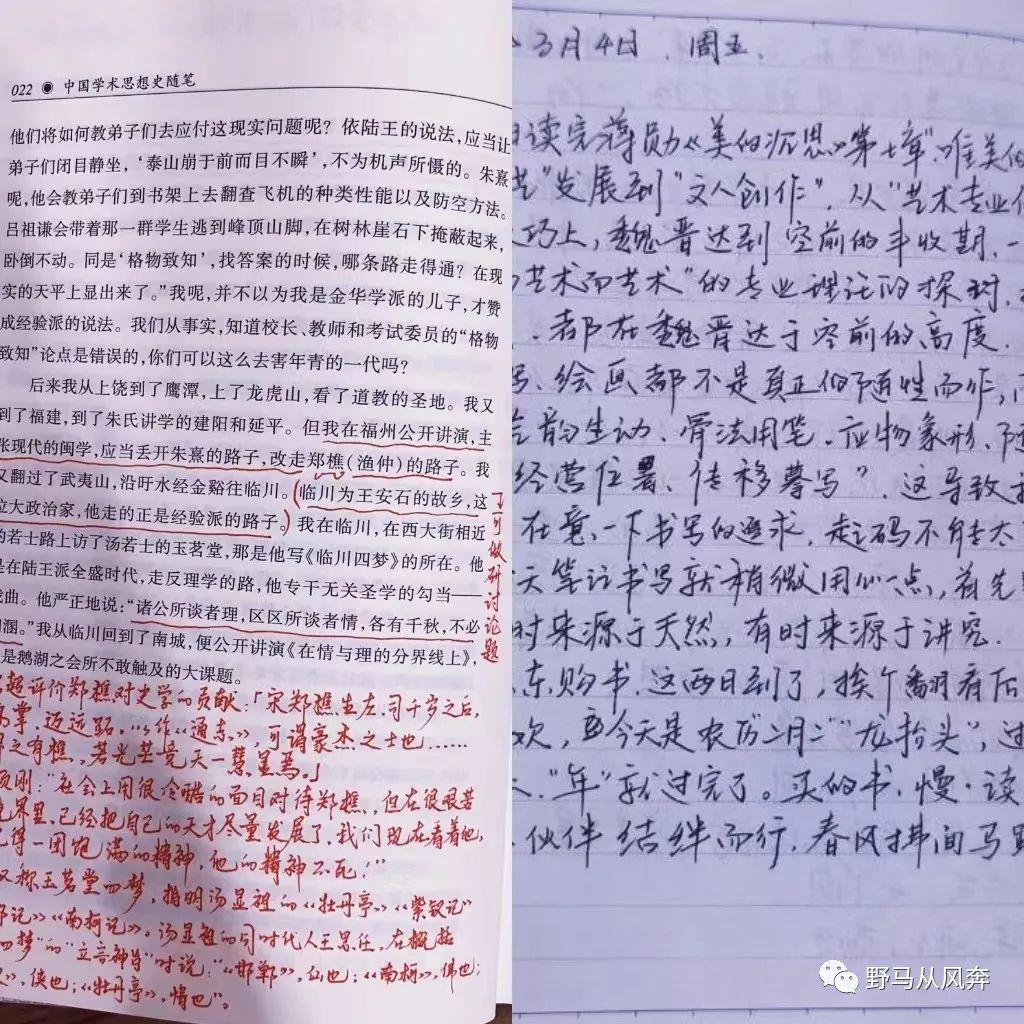 022 ◉ 中国学术思想史随笔
他们将如何教弟子们去应付这现实问题呢？依陆王的说法，应当让
弟子们闭目静坐，‘泰山崩于前而目不瞬’，不为机声所慑的。朱熹
呢，他会教弟子们到书架上去翻查飞机的种类性能以及防空方法。
吕祖谦会带着那一群学生逃到峰顶山脚，在树林崖石下掩蔽起来，
卧倒不动。同是‘格物致知’，找答案的时候，哪条路走得通？在现
实的天平上显出来了。”我呢，并不以为我是金华学派的儿子，才赞
成经验派的说法。我们从事实，知道校长、教师和考试委员的“格物
致知”论点是错误的，你们可以这么去害年青的一代吗？
后来我从上饶到了鹰潭，上了龙虎山，看了道教的圣地。我又
到了福建，到了朱氏讲学的建阳和延平。但我在福州公开讲演，主
张现代的闽学，应当丢开朱熹的路子，改走郑樵（渔仲）的路子。我
又翻过了武夷山，沿旴水经金谿往临川。临川为王安石的故乡，这
位大政治家，他走的正是经验派的路子。我在临川，在西大街相近
的若士路上访了汤若士的玉茗堂，那是他写《临川四梦》的所在。他
是在陆王派全盛时代，走反理学的路，他专干无关圣学的勾当——
戏曲。他严正地说：“诸公所谈者理，区区所谈者情，各有千秋，不必
。”我从临川回到了南城，便公开讲演《在情与理的分界线上》，
是鹅湖之会所不敢触及的大课题。
可做研讨论题
超评价郑樵对史学的贡献：「宋郑樵生左、司千岁之后，
高掌，迈远跖，以作《通志》，可谓豪杰之士也……
之有樵，若光芒竟天一慧星焉。」
颉刚：“社会上用很冷酷的面目对待郑樵，但在很艰苦
境界里，已经把自己的天才尽量发展了，我们现在看着他，
得一团饱满的精神，他的精神不死！”
又称玉茗堂四梦，指明汤显祖的《牡丹亭》《紫钗记》
郸记》《南柯记》。汤显祖的同时代人王思任，在概括
四梦”的“立言神旨”时说：“《邯郸》，仙也；《南柯》，佛也；
》，侠也；《牡丹亭》，情也”。
3月4日，周五。
日读完蒋勋《美的沉思》第七章“唯美的
艺”发展到“文人创作”，从“艺术专业化
巧上，魏晋达到空前的丰收期，一
艺术而艺术”的专业理论的探讨，
都在魏晋达于空前的高度。
写、绘画都不是真正的随性而作，
韵生动、骨法用笔、应物象形、随
经营位置、传移摹写”，这导致
在意一下书写的追求，起码不能太
天笔记书写就稍微用心一点，首先
时来源于天然，有时来源于讲究。
东购书，这两日到了，挨个翻看后
次，至今天是农历二月二“龙抬头”，过
，“年”就过完了。买的书，慢慢读
伙伴结绊而行，春风拂面马
野马从风奔